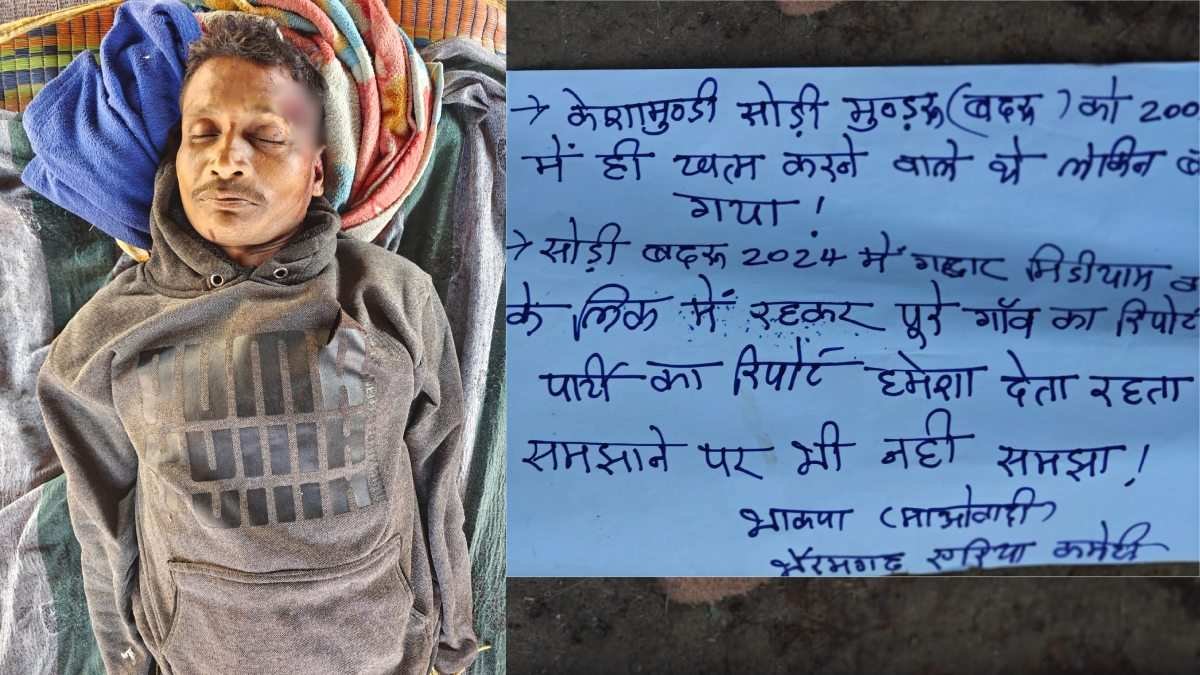 → केशामुण्डी सोड़ी मुण्ड़रू (बदरू) को 200
में ही खत्म करने वाले थे लेकिन ब
गया!
→ सोड़ी बदरू 2024 में गद्दार मिडीयाम
के लिंक में रहकर पूरे गाँव का रिपोर्ट
पार्टी का रिपोर्ट हमेशा देता रहता
समझाने पर भी नही समझा!
भाकपा (माओवादी)
भैरमगढ़ एरिया कमेटी